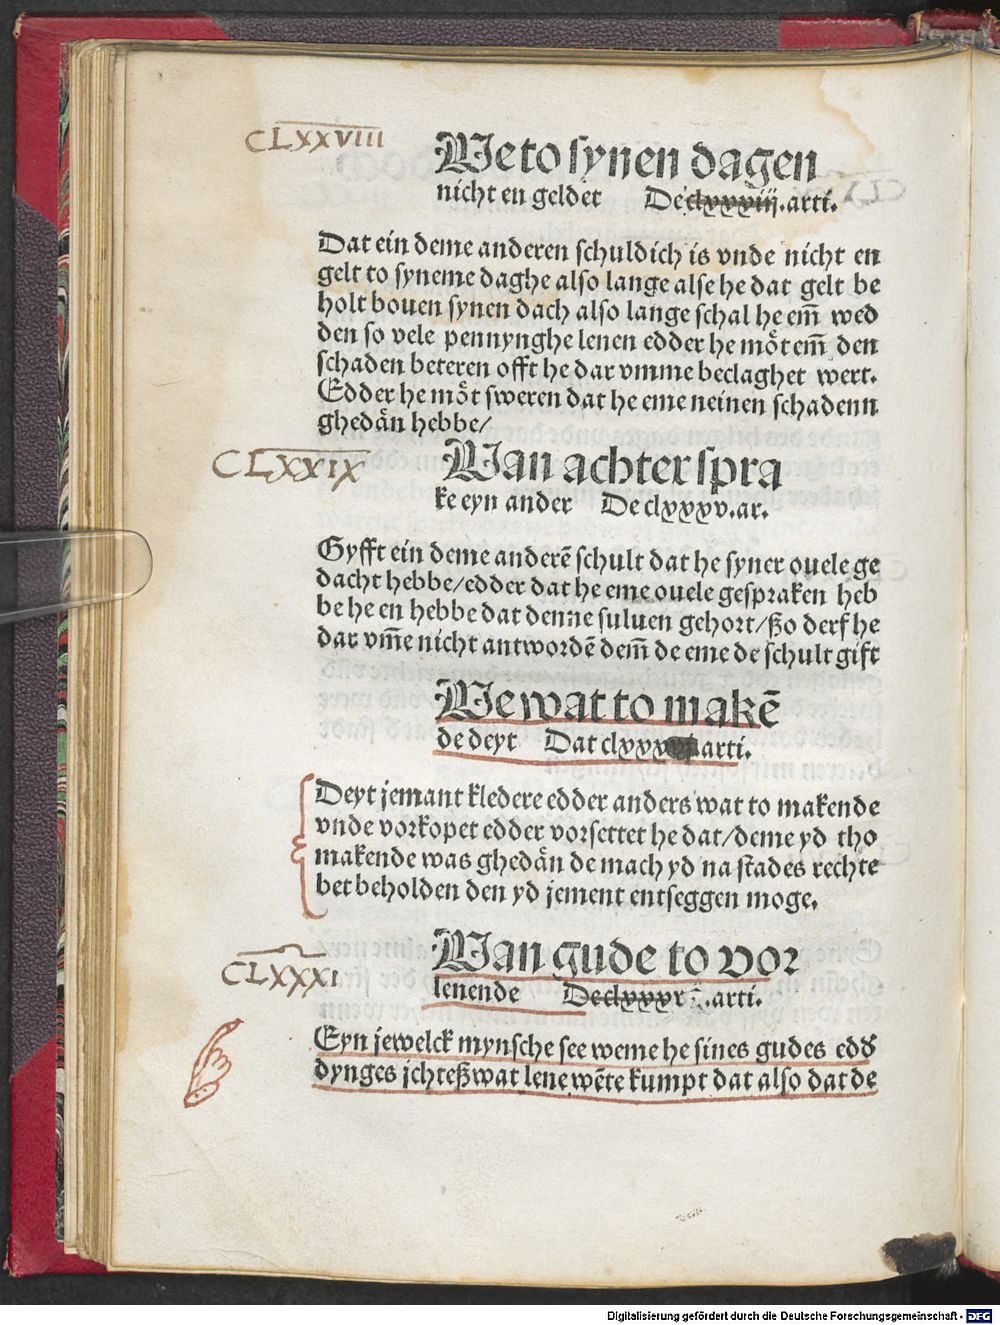 CLXXVIII
We to synen dagen
nicht en geldet De clxxxiij. arti.
Dat ein deme anderen schuldich is vnde nicht en
gelt to syneme daghe also lange alse he dat gelt be
holt bouen synen dach also lange schal he em̄ wed
den so vele pennynghe lenen edder he moͤt em̄ den
schaden beteren offt he dar vmme beclaghet wert.
Edder he moͤt sweren dat he eme neinen schadenn
ghedaͤn hebbe/
CLXXIX
Wan achter spra
ke eyn ander De clxxxv. ar.
Gyfft ein deme anderē schult dat he syner ouele ge
dacht hebbe/edder dat he eme ouele gespraken heb
be he en hebbe dat denne suluen gehort/ßo derf he
dar vm̄e nicht antwordē dem̄ de eme de schult gift
We wat to makē
de deyt Dat clxxx arti.
Deyt jemant kledere edder anders wat to makende
vnde vorkopet edder vorsettet he dat/deme yd tho
makende was ghedaͤn de mach yd na stades rechte
bet beholden den yd jement entseggen moge.
CLXXXI
Wan gude to vor
lenende De clxxx .arti.
Eyn jewelck mynsche see weme he sines gudes edď
dynges jchteßwat lene wēte kumpt dat also dat de
Digitalisierung gefördert durch die Deutsche Forschungsgemeinschaft - DFG